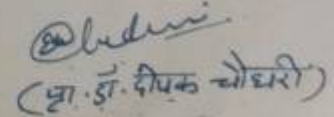 (प्रा.डॉ. दीपक चौधरी)